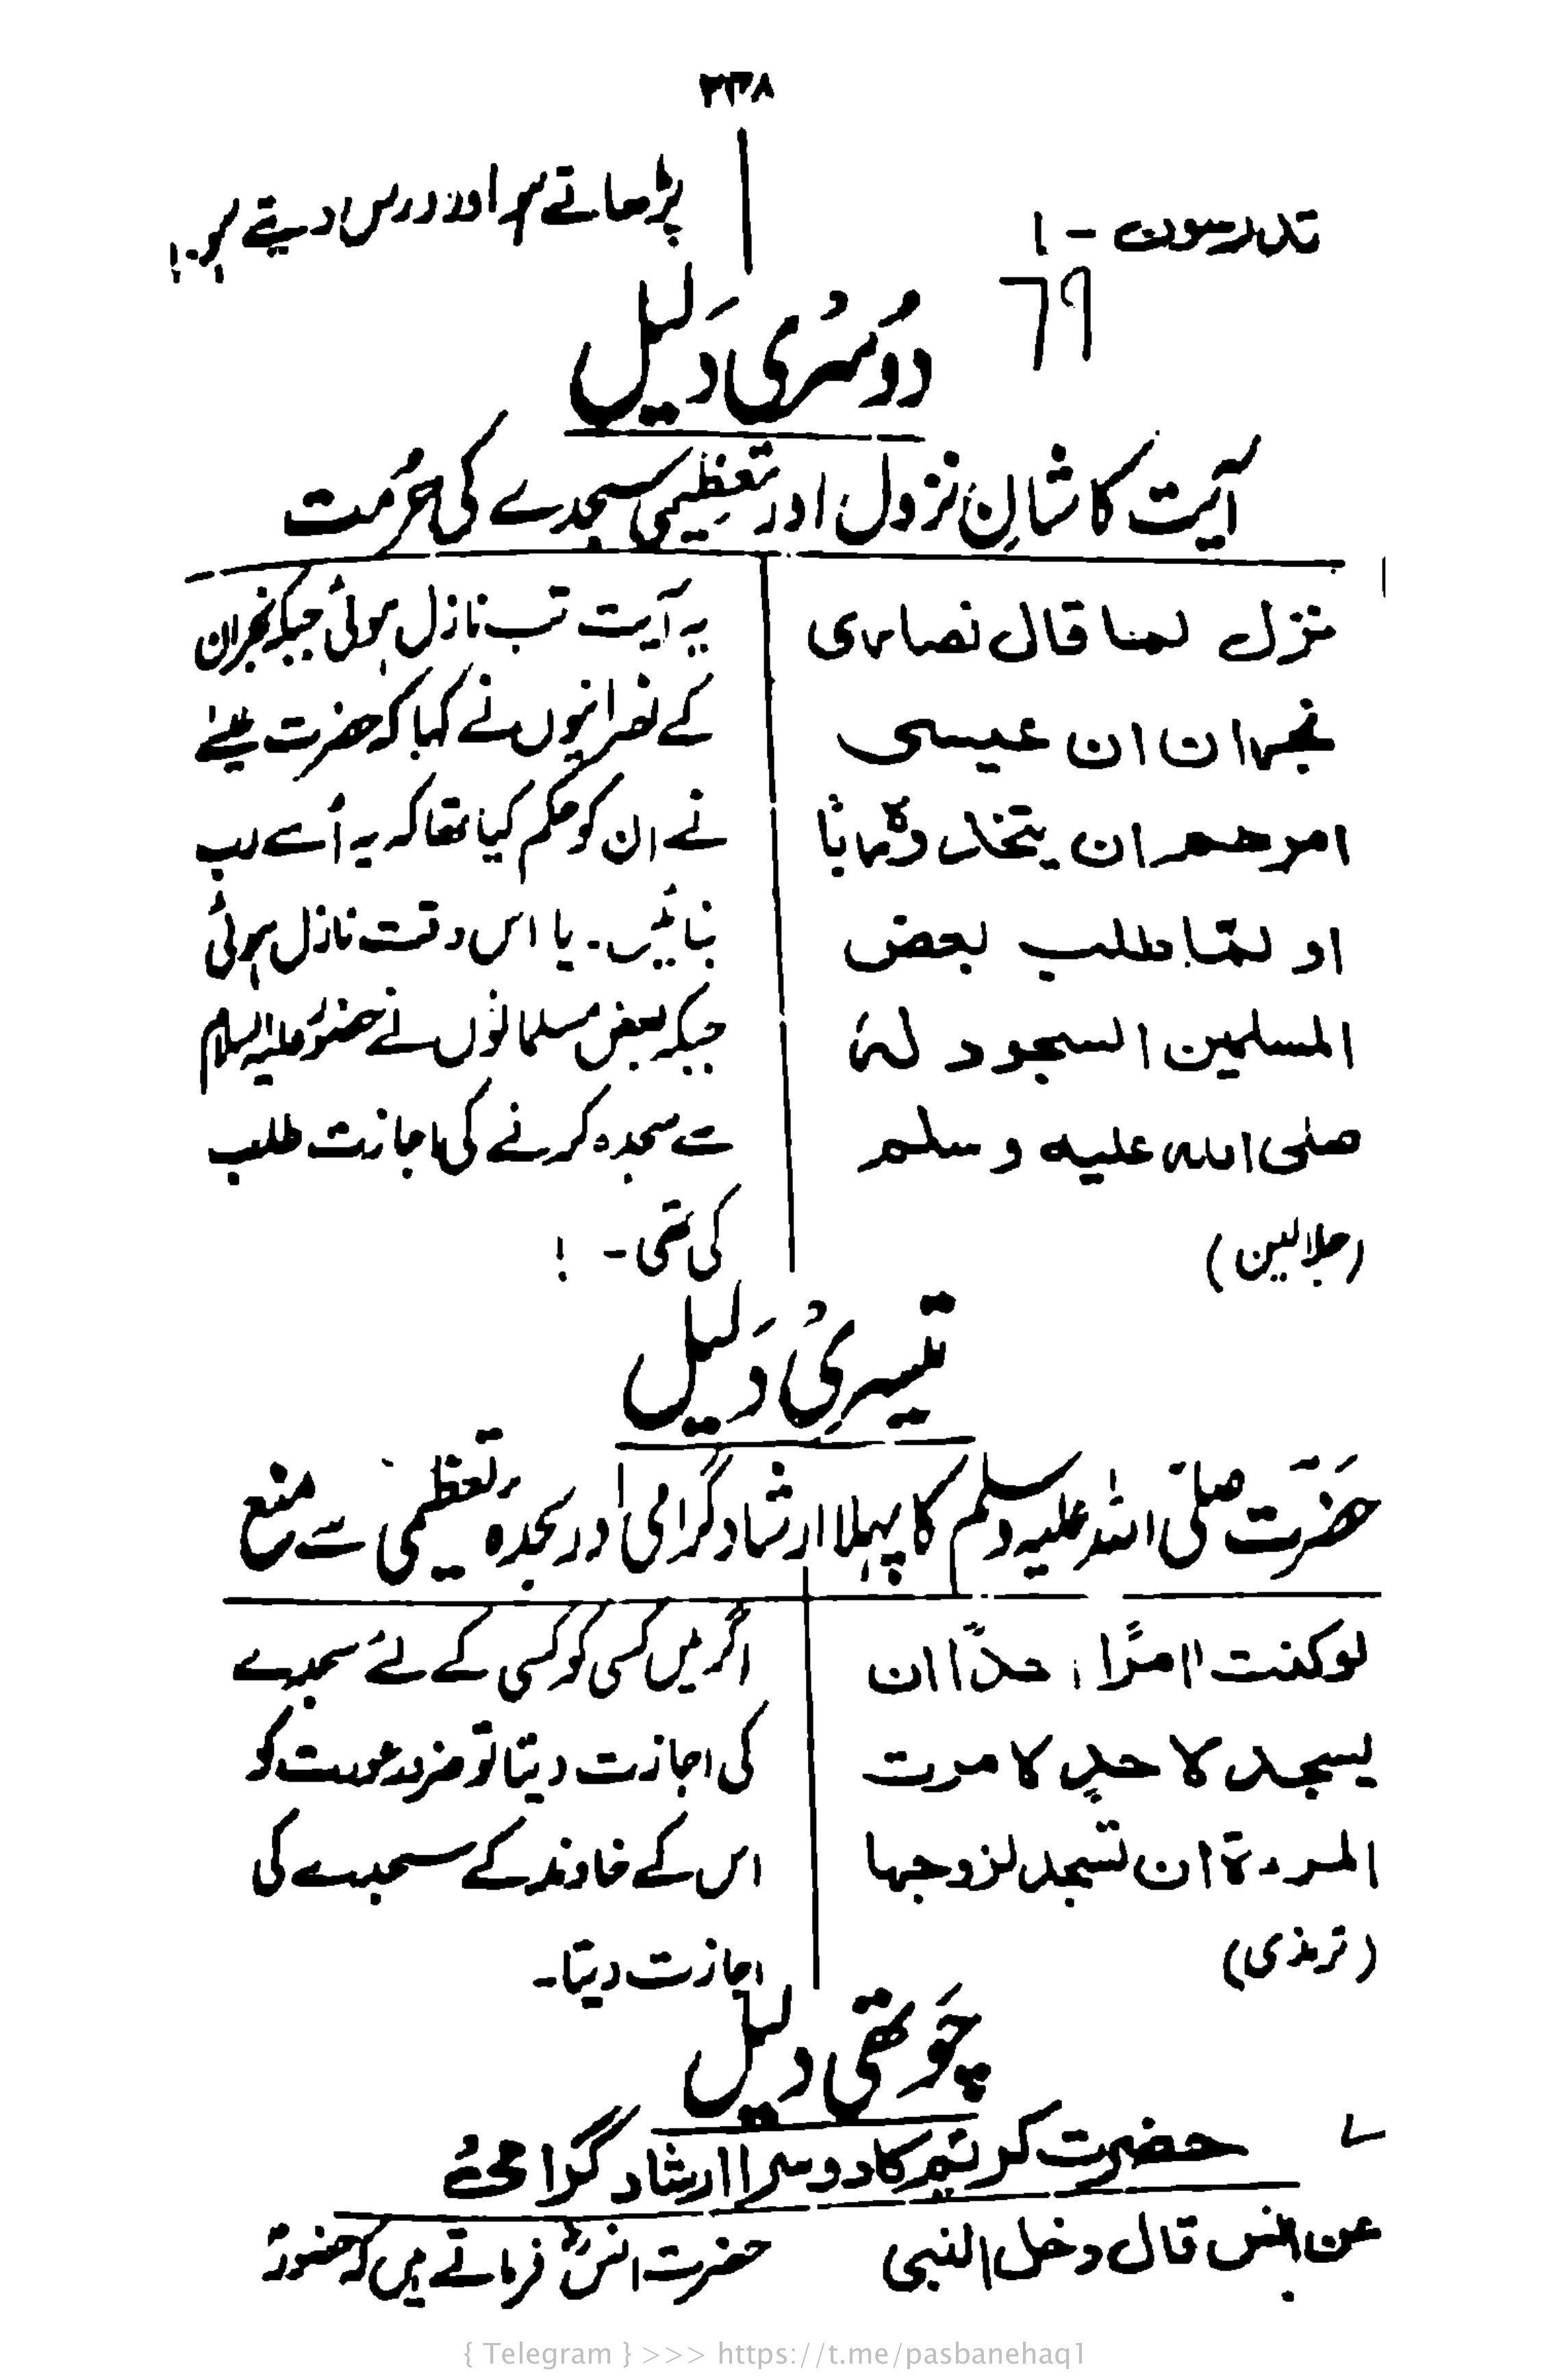 ۳۳۸
تدرسون - ا
پڑھاتے ہو اور درس دیتے ہو۔!
79
دوسری دلیل
آیت کا شانِ نزول اور تعظیمی سجدے کی حرمت
نزل لما قال نصاری
نجران ان عیسی
امرهم ان یتخذوه ربًا
او لمّا طلب بعض
المسلمین السجود لهٗ
صلی الله علیه وسلم
(جلالین)
یہ آیت تب نازل ہوئی جبکہ نجران
کے نصرانیوں نے کہا کہ حضرت عیسٰے
نے ان کو حکم کیا تھا کہ یہ اُسے رب
بنائیں۔ یا اس وقت نازل ہوئی
جبکہ بعض مسلمانوں نے حضورؐ علیہ السلام
سے سجدہ کرنے کی اجازت طلب
کی تھی۔ !
تیسری دلیل
حضرت صلی اللہ علیہ وسلم کا پہلا ارشاد گرامی اور سجدہ تعظیمی سے منع
لوکنت اامرًا احدًا ان
یسجد لاحدٍ لامرت
المرءة ان تسجد لزوجها
(ترمذی)
اگر میں کسی کو کسی کے لئے سجدے
کی اجازت دیتا تو ضرور عورت کو
اس کے خاوند کے سجدے کی
اجازت دیتا۔
چوتھی دلیل
حضرت کریم کا دوسرا ارشاد گرامی
عن انس قال دخل النبی
حضرت انسؓ فرماتے ہیں کہ حضورؐ
{ Telegram } >>> https://t.me/pasbanehaq1